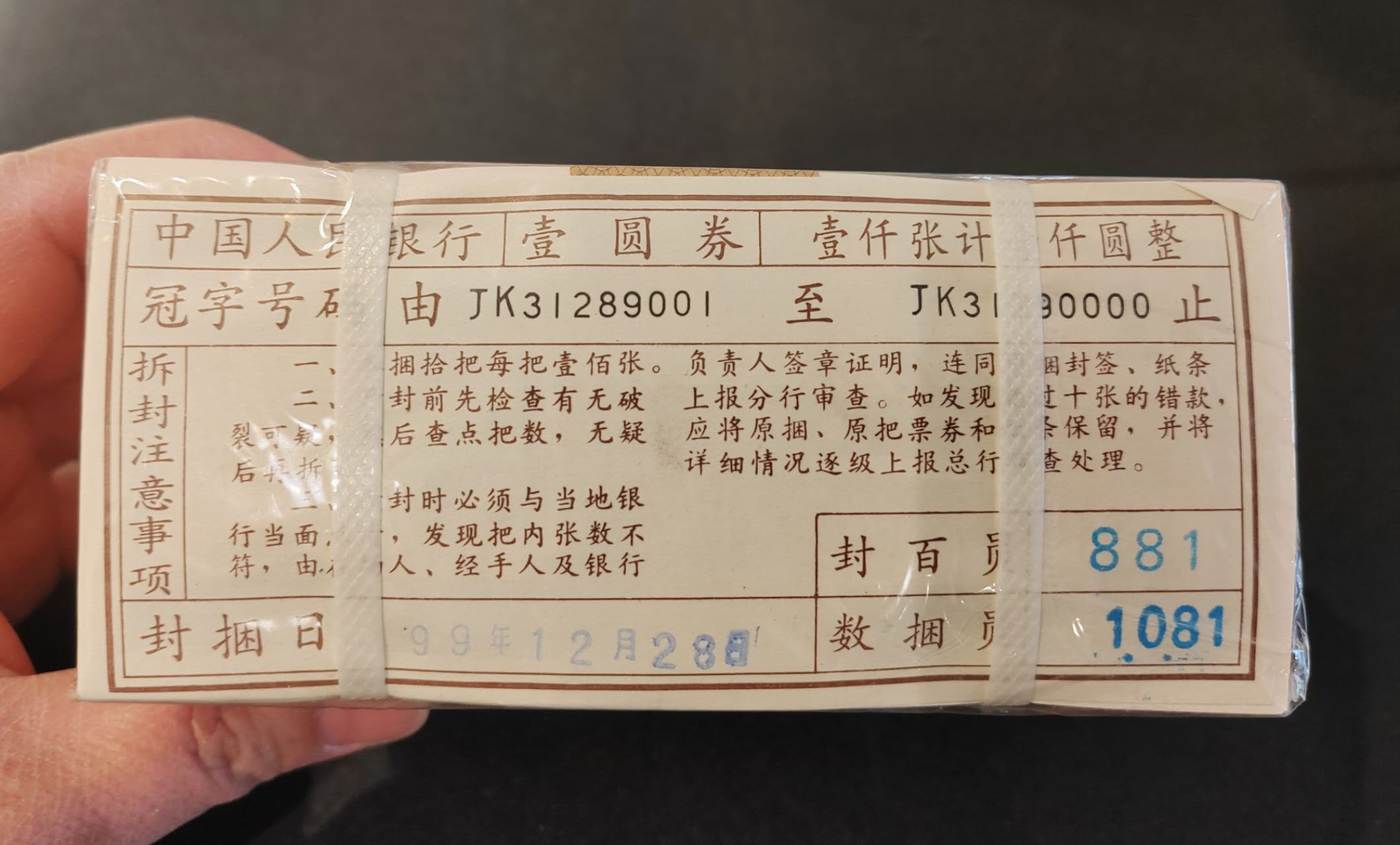 中国人民银行 壹圆券 壹仟张计 仟圆整
冠字号 由 JK31289001 至 JK31 90000 止
拆封注意事项
一、 捆拾把每把壹佰张。
二、 封前先检查有无破
裂可疑, 后查点把数,无疑
后再拆
封时必须与当地银
行当面 ,发现把内张数不
符,由 人、经手人及银行
负责人签章证明,连同 捆封签、纸条
上报分行审查。如发现 过十张的错款,
应将原捆、原把票券和 条保留,并将
详细情况逐级上报总行 查处理。
封百员 881
封捆日 99年12月28
数捆员 1081